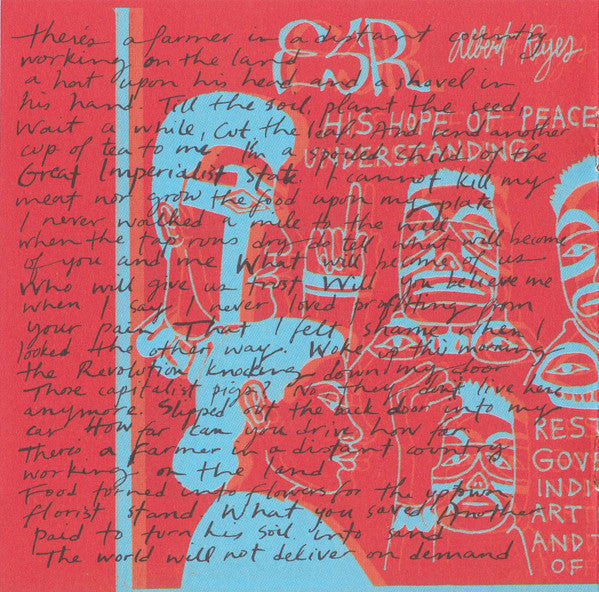 There's a farmer in a distant country
working on the land
a hat upon his head and a shovel in
his hand. Till the soil, plant the seed
Wait a while, Cut the leaf, And send another
cup of tea to me I'm a spoiled child of the
Great Imperialist State. I cannot kill my
meat nor grow the food upon my plate
I never walked a mile to the well
when the tap runs dry do tell what will become
of you and me What will become of us
Who will give us trust Will you believe me
when I say I never loved profiting from
your pain That I felt shame when I
looked the other way. Woke up this morning
the Revolution knocking down my door
Those capitalist pigs? No they don't live here
anymore. Slipped out the back door into my
car How far can you drive how far
There's a farmer in a distant country
working on the land
Food turned into flowers for the uptown
florist stand What you saved Another
paid to turn his soil into sand
The world will not deliver on demand
Albert Reyes
HIS HOPE OF PEACE
UNDERSTANDING
REST
GOVE
INDI
ART
AND
OF